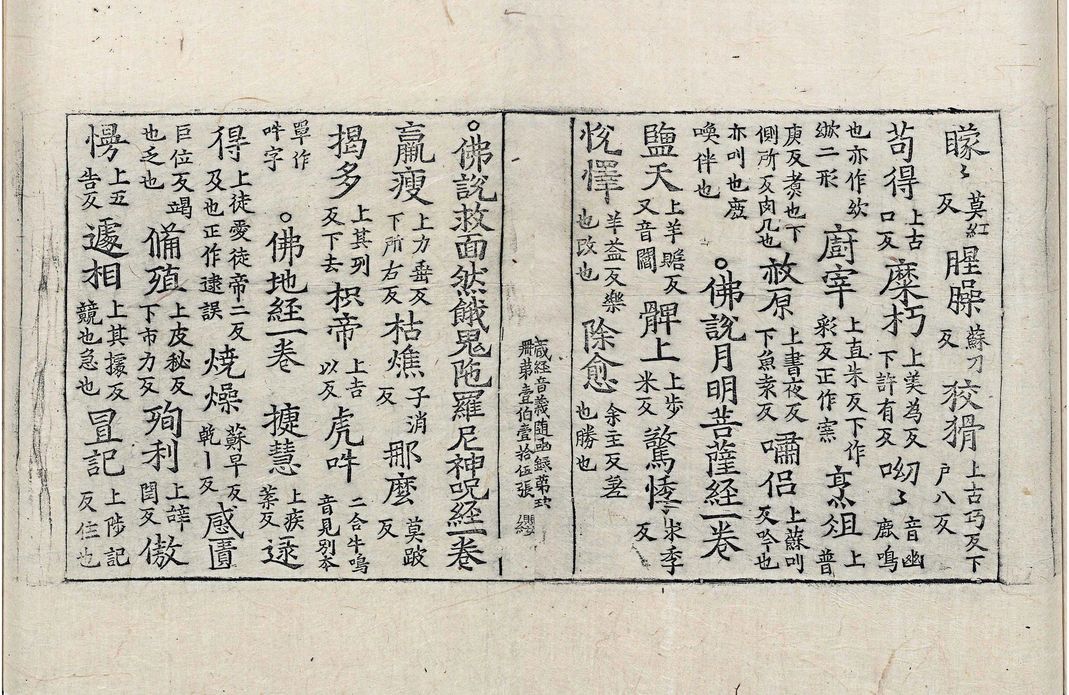 矇〻莫紅反腥臊蘇刀反狡猾上古巧反下戶八反
苟得上古口反糜朽上美為反下許有反呦〻音幽鹿鳴
也亦作欻㰼二形廚宰上直朱反下作䆁反正作宷烹俎上普
庚反煑也下側所反肉几也赦原上書夜反下魚袁反嘯侶上蘇叫反吟也
亦叫也㢘喚伴也○佛說月明菩薩經一卷
鹽天上羊䀋反又音閻髀上上步米反驚悸〻求季反
恱懌羊益反樂也改也除愈余主反差也勝也
藏經音義隨函錄第玖冊第壹伯壹拾伍張纓
○佛說救面然餓鬼陁羅尼神呪經一卷
羸瘦上力垂反下所右反枯燋子消反那麼莫跛反
揭多上其列反下去枳帝上吉以反虎吽二合牛鳴音見別本
單作吽字○佛地經一卷捷慧上疾葉反逮
得上徒愛徒帝二反及也正作逮誤燒燥蘇早反乹丨反感匱
巨位反竭也乏也備殖上皮秘反下市力反殉利上辝閏反傲
慢上五告反遽相上其據反競也急也冒記上陟記反住也